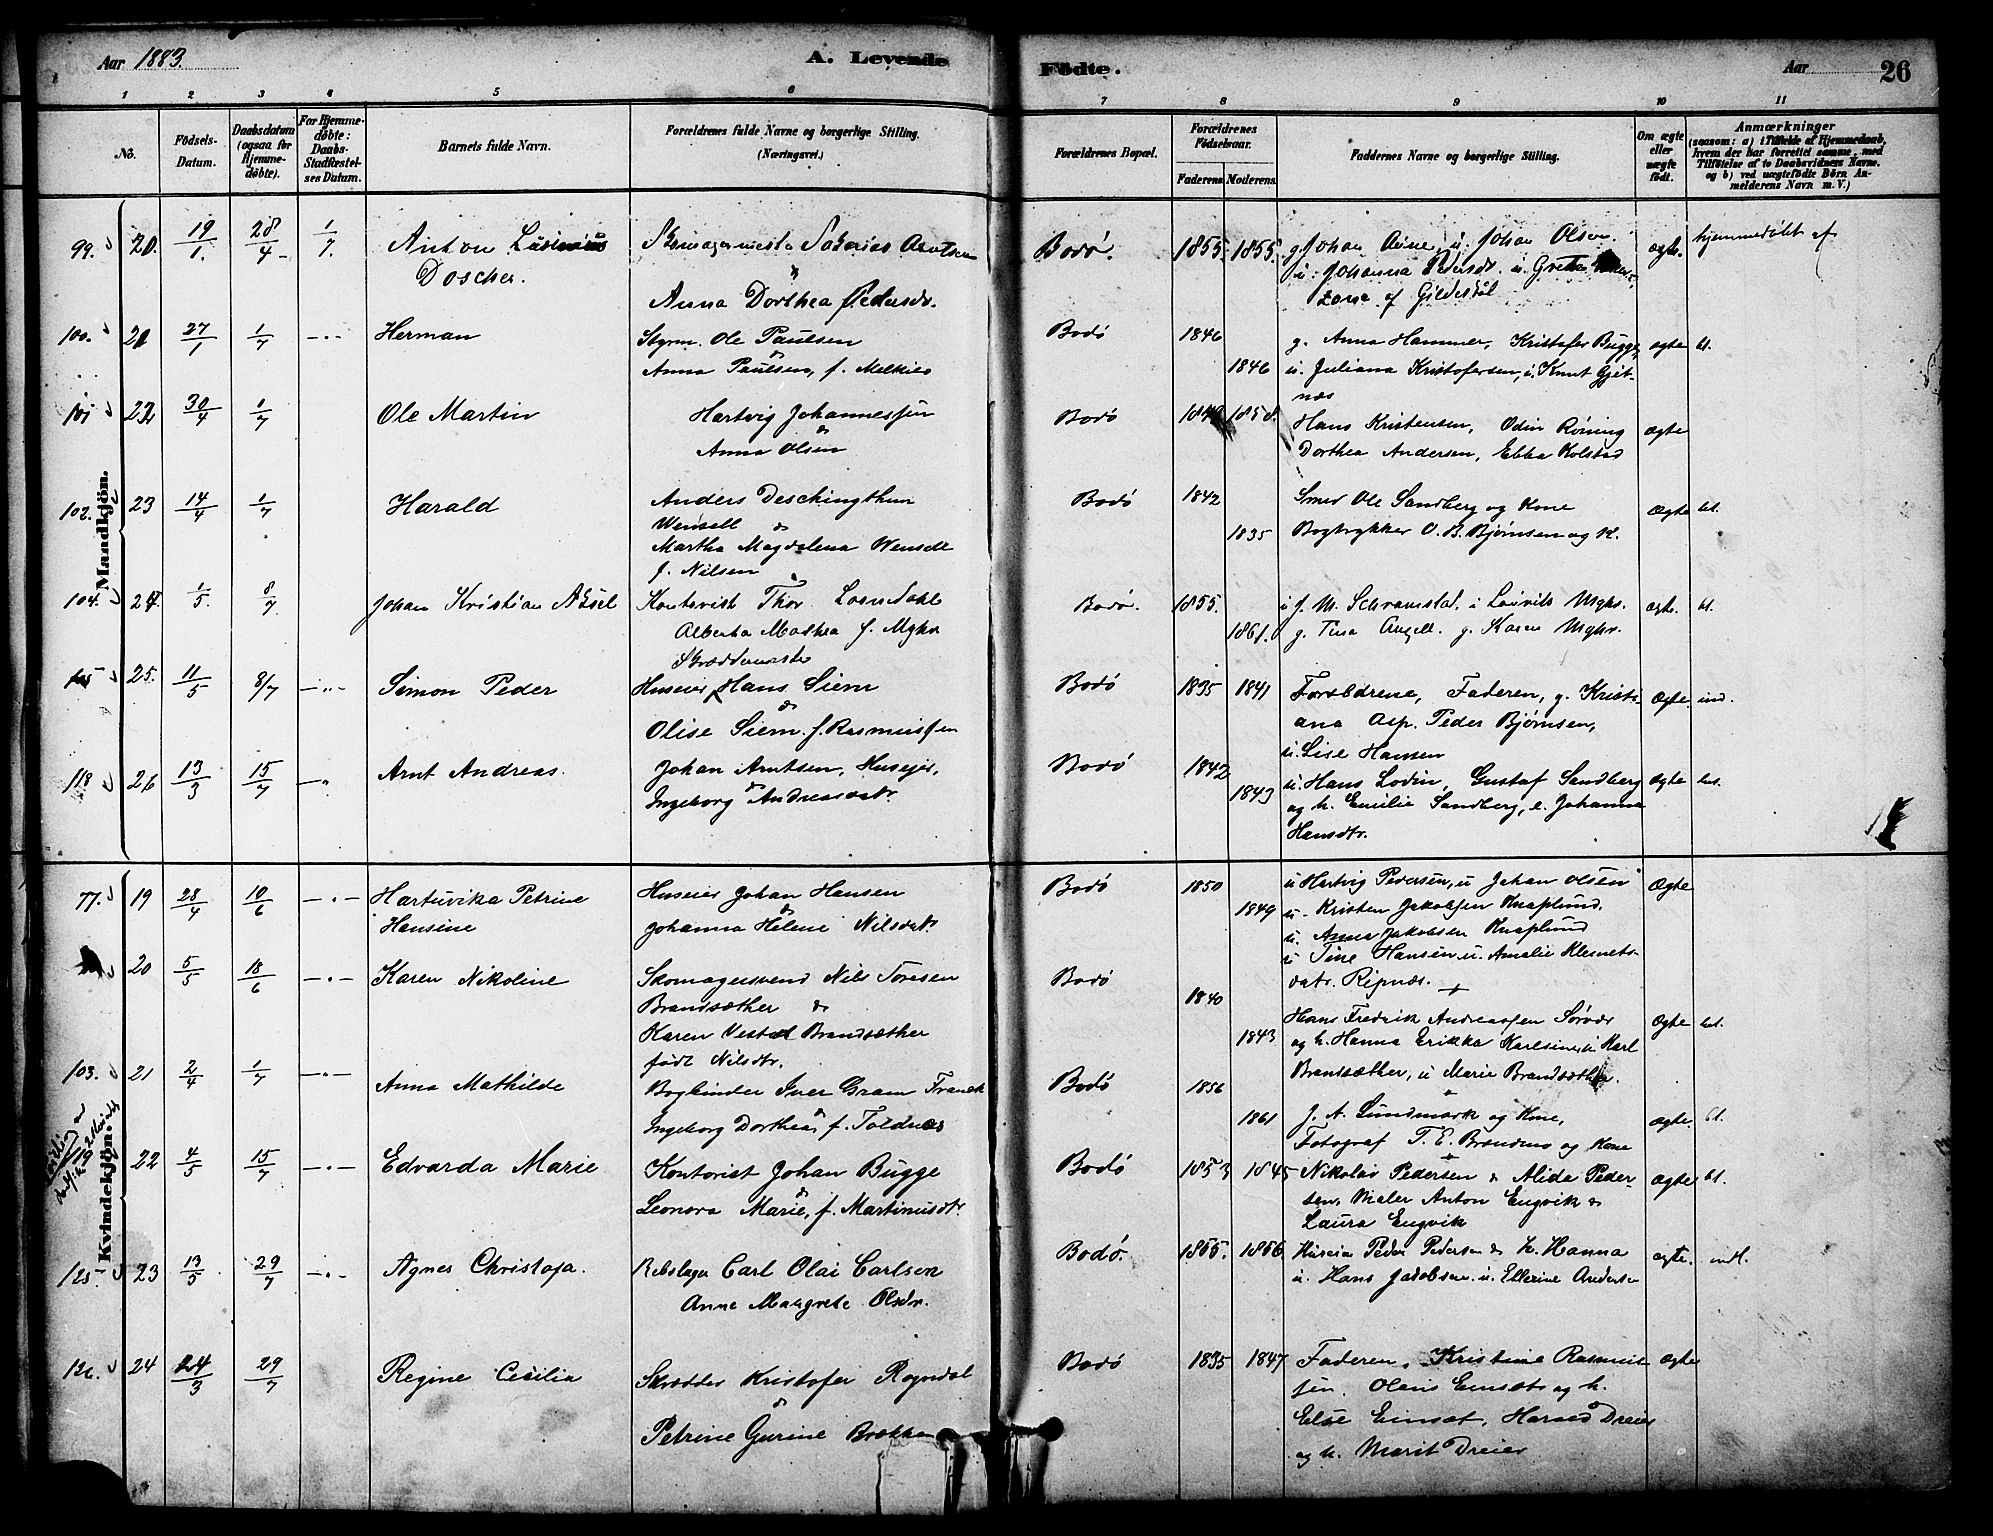 Aar 1883. A. Levende Födte. Aar 26
1 2 3 4 5 6 7 8 9 10 11
No.
Födsels-Datum.
Daabsdatum (ogsaa for Hjemme-döbte).
For Hjemme-döbte: Daabs-Stadfæstel-ses Datum.
Barnets fulde Navn.
Forældrenes fulde Navne og borgerlige Stilling.
(Næringsvei.)
Forældrenes Bopæl.
Forældrenes Födselsaar.
Faderens. Moderens.
Faddernes Navne og borgerlige Stilling.
Om ægte eller uægte födt.
Anmærkninger
(saasom: a) i Tilfælde af Hjemmedaab, hvem der har forrettet samme, med Tilföielse af to Daabsvidners Navne, og b) ved uægtefödte Börn An-melderens Navn m. V.)
Mandkjön.
99. 20. 19/1. 28/4 1/7. Anton
Doscher.
Anna Dorthea Pedersdr.
Bodø. 1855. 1855. g. Johan u. Johan Olsen.
u. Johanna Pedersdr. u.
af Gildeskål
ægte. hjemmedøbt af
100. 21 27/1 1/7 -"- Herman
Styrm. Ole Paulsen
&
Anna Paulsen, f. Melkies
Bodø 1846 1846
g. Anna Hammer, Kristofer Bugge,
u. Juliana Kristofersen, u. Knut Gjet-
nes
ægte bl.
101 22 30/4 1/7 Ole Martin
Hartvig Johannessen
&
Anna Olsen
Bodø 1850.
Hans Kristensen, Odin Røning
Dorthea Andersen, Ebba Kolstad
ægte
102. 23 14/4 1/7 Harald
Anders
Wensell &
Martha Magdalena Wensell
f. Nilsen
Bodø 1842 1835
Smed Ole Sandberg og Kone
Bogtrykker O. B. Bjørnsen og K.
Ægte bl.
104. 24. 1/5. 8/7. Johan Kristian Aksel
Kontorist Thor
Alberta Mathea f.
Bodø. 1855. 1861.
u J. M. Schramstad,
g. Tina Angell. g. Karen
ægte. bl.
105 25. 11/5 8/7 -"- Simon Peder
Huseier Hans Siem
&
Olise Siem f. Rasmussen
Bodø 1835 1841
Forældrene, Faderen, g. Kristi-
ana Asp. Peder Bjørnsen,
u. Lise Hansen
Ægte. ind.
118 26 13/3 15/7 -"- Arnt Andreas.
Johan Arntsen, Husejer,
&
Ingeborg Andreasdatr.
Bodø 1842 1843
u. Hans Lodin, Gustaf Sandberg
og h. Emilie Sandberg, e. Johanna
Hansdtr.
Ægte bl.
Kvindekjön.
77. 19 28/4 10/6 -"- Hartuvika Petrine
Hansine
Huseier Johan Hansen
&
Johanna Helene Nilsdatr.
Bodø 1850 1849
u Hartvig Pedersen, u Johan Olsen
u. Kristen Jakobsen Knaplund,
u. Anna Jakobsen Knaplund
u Tine Hansen u. Amalie Klemets-
datr. Ripnæs.
Ægte
20 5/5 18/6 -"- Karen Nikoline
Skomagersvend Nils Toresen
Brandsæther &
Karen Brandsæther
født Nilsdtr.
Bodø 1840 1843
Hans Fredrik Andreassen
og h. Hanna Erikka Karlsine, u Karl
Brandsæther, u Marie Brandsæther.
Ægte bl.
103. 21 2/4 1/7 -"- Anna Mathilde
Bogbinder Iver Gram Franck
&
Ingeborg Dorthea, f. Toldnes
Bodø 1856 1861
J. A. Lundmark og Kone,
Fotograf T. E. Brandmo og Kone
ægte bl.
22 4/5 15/7 -"- Edvarda Marie
Kontorist Johan Bugge
&
Leonora Marie, f. Martinusdtr.
Bodø 1853 1845
Nikolai Pedersen & Alida Peder-
sen, Maler Anton Engvik &
Laura Engvik
ægte bl.
125 23 13/5 29/7 -"- Agnes Christofa.
Rebslager Carl Olai Carlsen
Anne Maagrete Olsdr.
Bodø. 1855. 1856
Huseier Peder Pedersen & h. Hanna
u. Hans Jakobsen. u. Ellerine Andersen
ægte. indl.
126. 24 24/3 29/7 Regine Cecilia
Skrædder Kristofer Rogndal
&
Petrine Gurine Brækken
Bodø 1835 1847
Faderen, Kristine Rasmus-
sen. Olaus Eimsæt og h.
Else Eimsæt, Harald Dreier
og h. Marit Dreier
Ægte